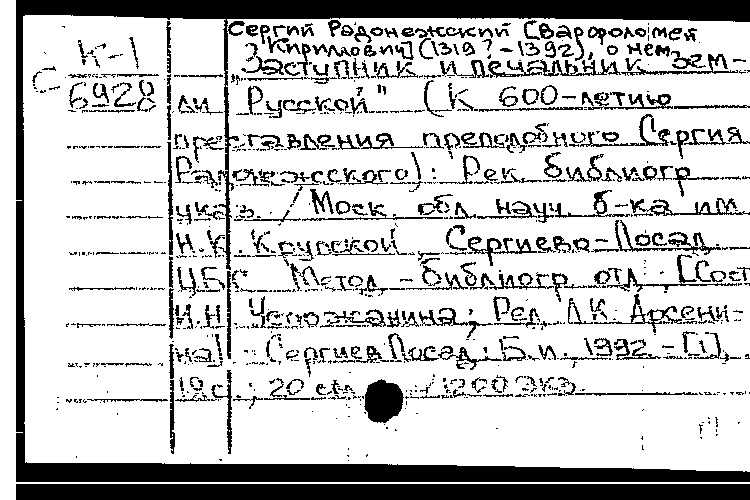 Сергий Радонежский [Варфоломей
К-1 Кириллович] (1319?-1392), о нем
С "Заступник и печальник зем-
6928 ли Русской" (К 600-летию
преставления преподобного Сергия
Радонежского): Рек. библиогр
указ. / Моск. обл. науч. б-ка им
Н.К. Крупской, Сергиево-Посад.
ЦБС Метод.-библиогр отд.; [Сост
И.Н. ; Ред. Л.К. Арсени-
на]. - Сергиев Посад: Б.и., 1992. - [1],
19с.; 20 см 1200 экз.